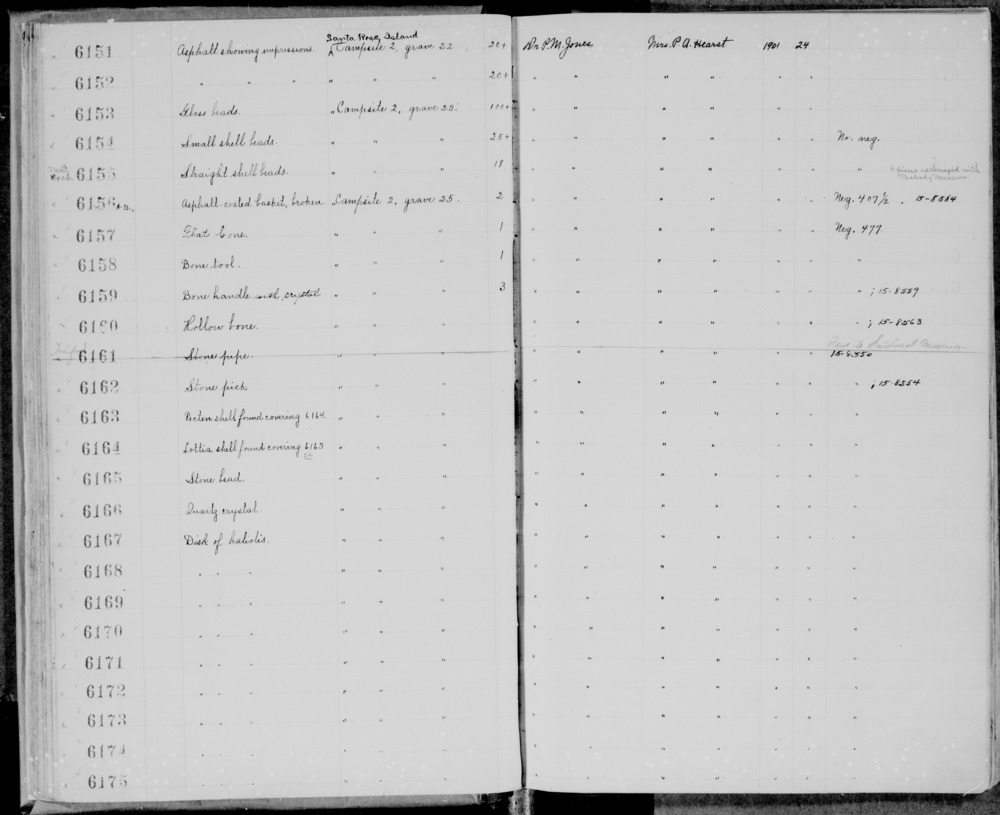 Santa Rosa Island
6151 Asphalt showing impressions. Campsite 2, grave 22 20+ Dr. P.M. Jones Mrs. P. A. Hearst 1901 24
6152 " " " " " " " 20+ " " " " " "
6153 Glass beads. " Campsite 2, grave 23. 100+ " " " " " "
6154 Small shell beads. " " " 25+ " " " " " " No. neg.
6155 Straight shell beads. " " " 18 " " " " " " " pieces exchanged with
Peabody Museum
6156 A-B. Asphalt-coated basket, broken " Campsite 2, grave 25. 2 " " " " " " Neg. 407 1/2 . 15-8584
6157 Flat bone. " " " 1 " " " " " " Neg. 477
6158 Bone tool. " " " 1 " " " " " " "
6159 Bone handle and crystal " " " 3 " " " " " " " ; 15-8559
6160 Hollow bone. " " " " " " " " " " ; 15-8563
6161 Stone pipe. " " " " " " " " " Museum
15-8550
6162 Stone pick " " " " " " " " " " ; 15-8554
6163 Pecten shell found covering 6164. " " " " " " " " " "
6164 Lottia shell found covering 6163 " " " " " " " " " "
6165 Stone bead. " " " " " " " " " "
6166 Quartz crystal. " " " " " " " " " "
6167 Disk of haliotis. " " " " " " " " " "
6168 " " " " " " " " " " " " "
6169 " " " " " " " " " " " " "
6170 " " " " " " " " " " " " "
6171 " " " " " " " " " " " " "
6172 " " " " " " " " " " " " "
6173 " " " " " " " " " " " " "
6174 " " " " " " " " " " " " "
6175 " " " " " " " " " " " " "